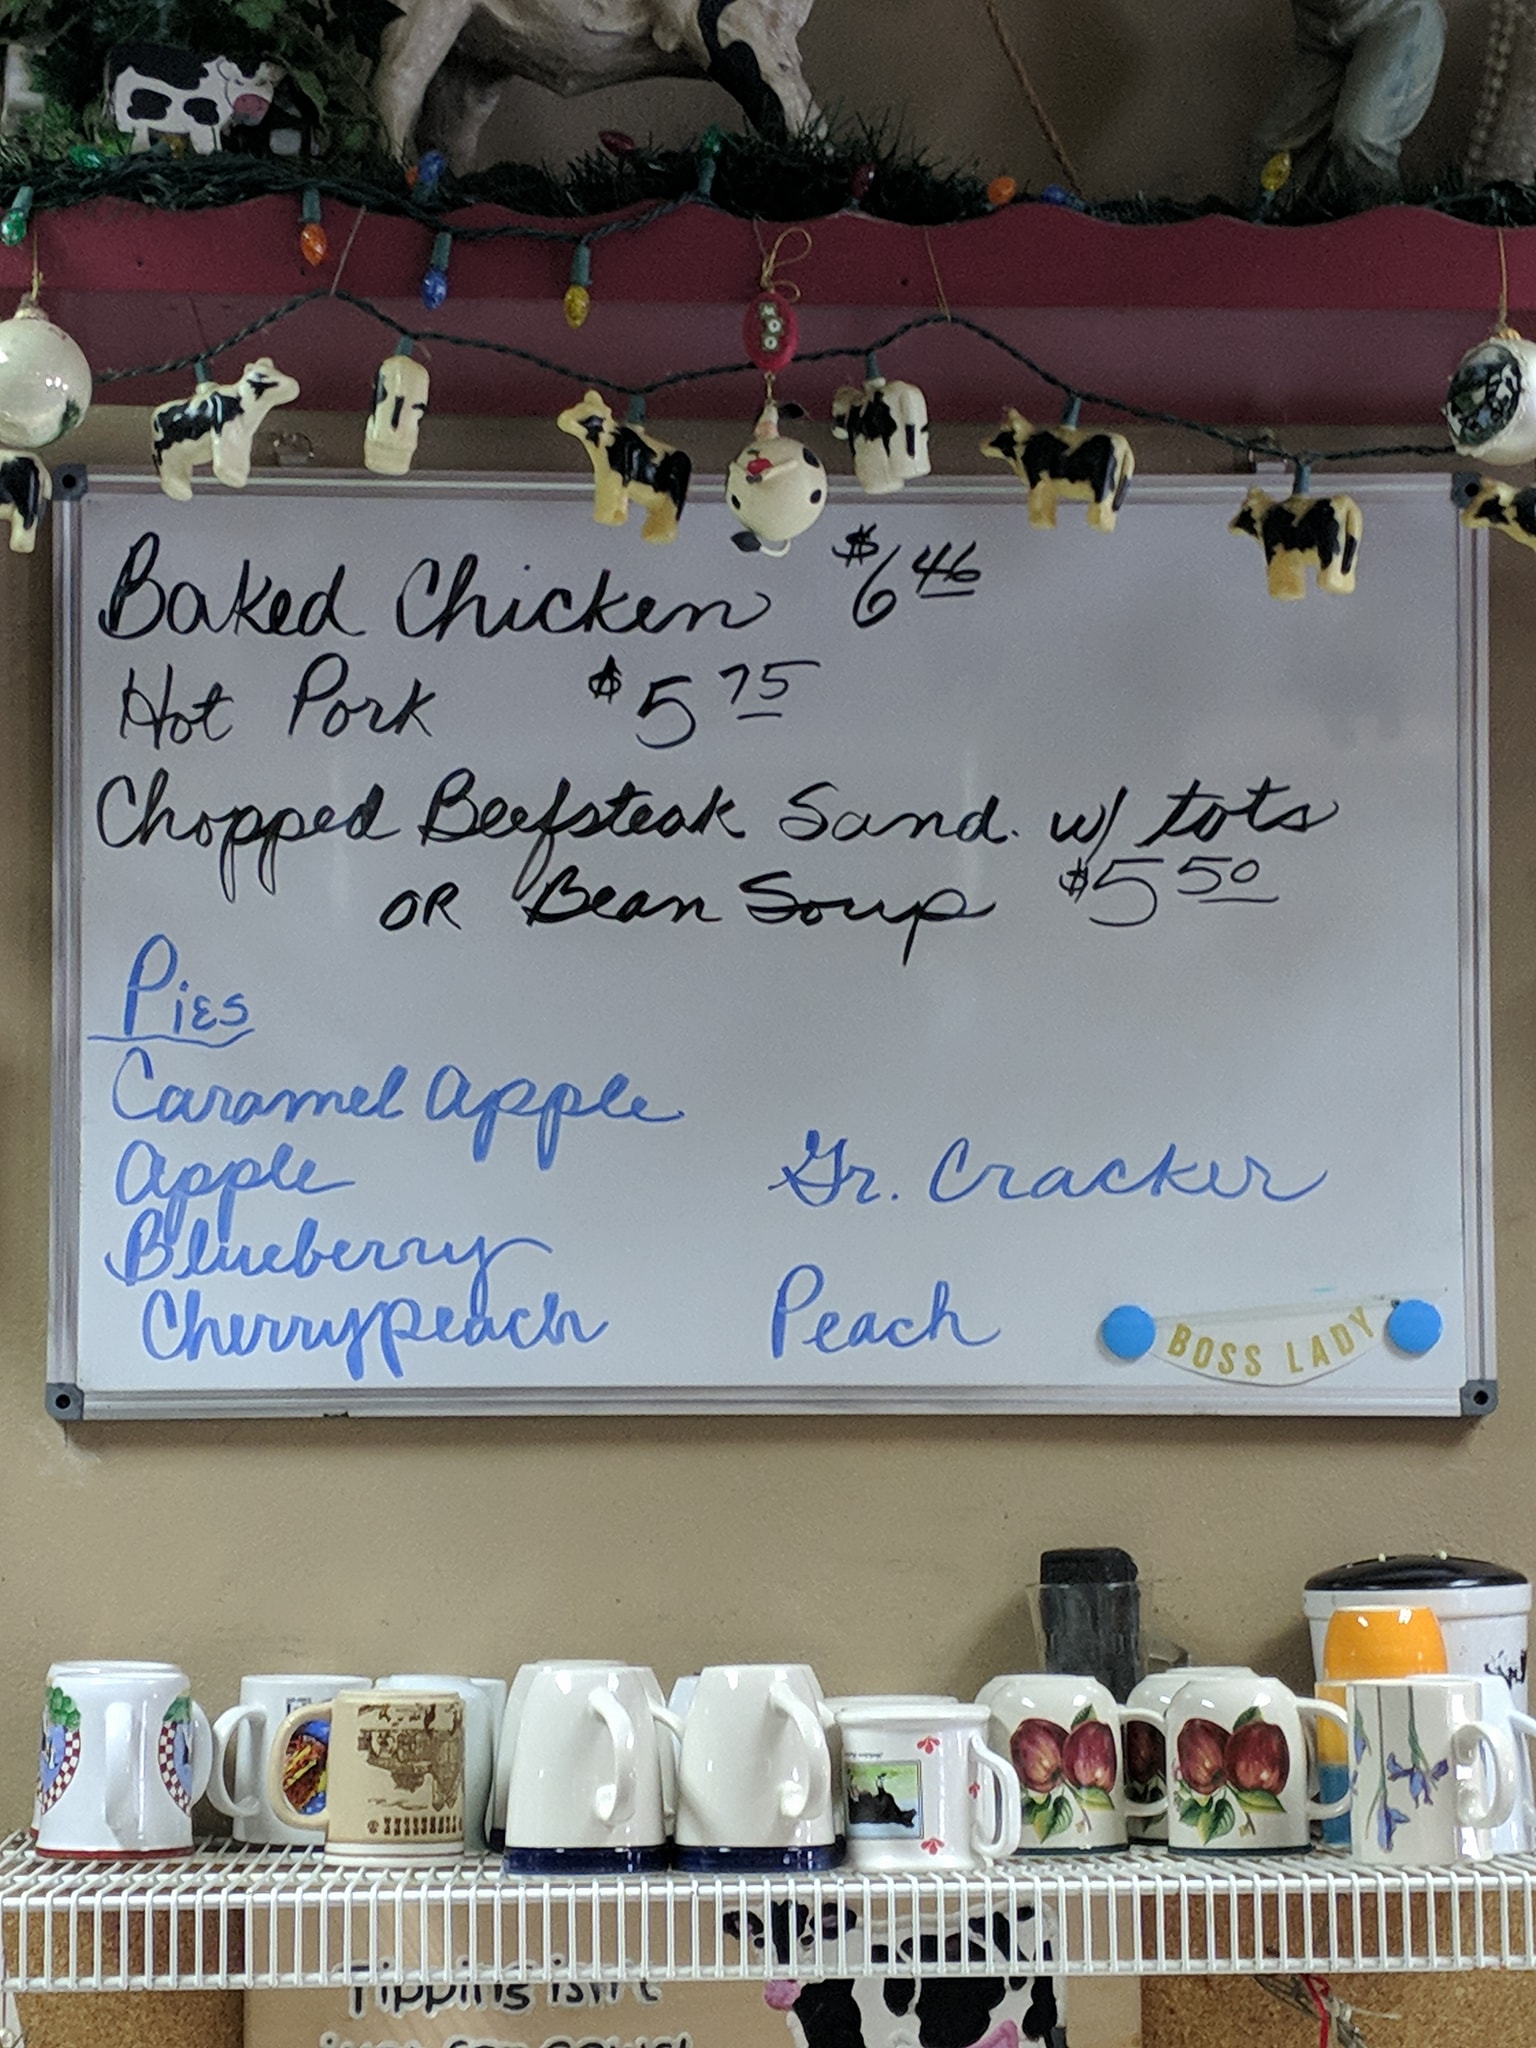 MOO
Baked Chicken $6 46
Hot Pork $5 75
Chopped Beefsteak Sand. w/ tots
OR Bean Soup $5 50
Pies
Caramel Apple
Apple
Gr. Cracker
Blueberry
Cherrypeach
Peach
BOSS LADY
Tipping isn't
just for cows!